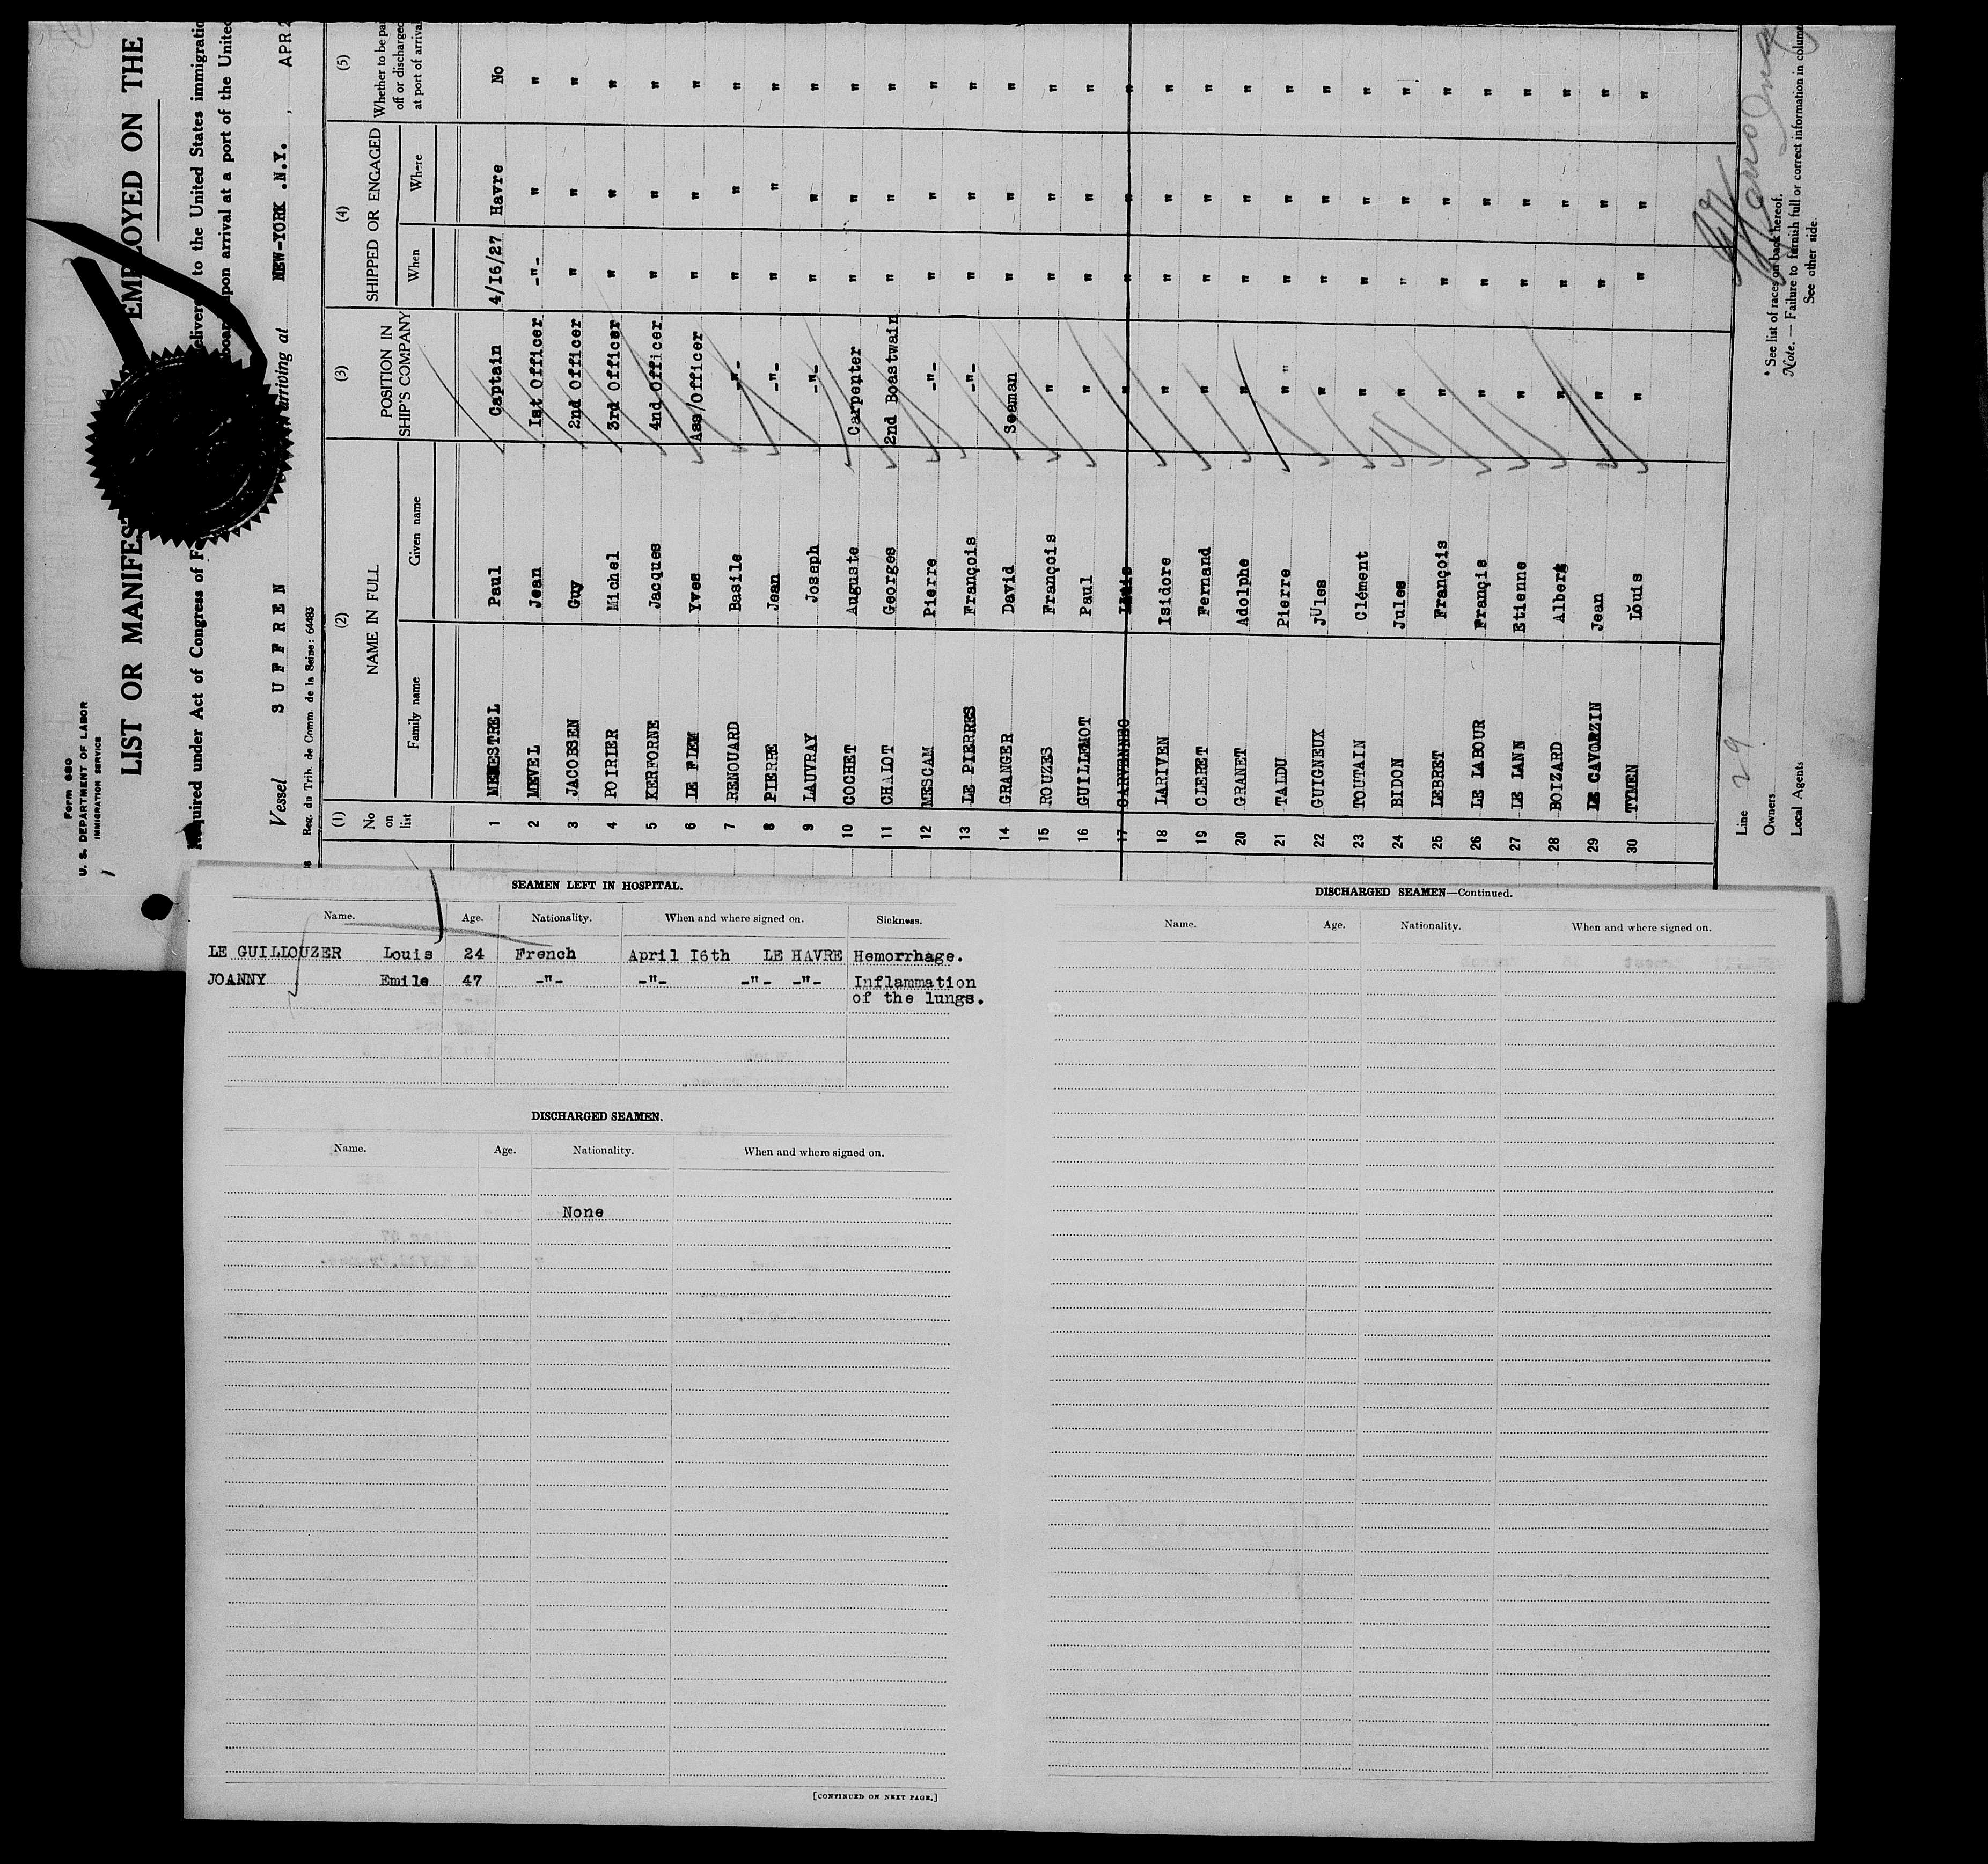 Form 680
U. S. DEPARTMENT OF LABOR
IMMIGRATION SERVICE
LIST OR MANIFEST EMPLOYED ON THE
Required under Act of Congress of to the United States
upon arrival at a port of the
Vessel SUFFREN arriving at NEW-YORK .N.Y. , APR
Reg. du Trib. de Comm. de la Seine: 64483
(1) (2) (3) (4) (5)
No on list NAME IN FULL POSITION IN SHIP'S COMPANY SHIPPED OR ENGAGED Whether to be paid off or discharged at port of arrival
Family name Given name When Where
1 MENESTREL Paul Captain 4/16/27 Havre No
2 MEVEL Jean Ist Officer -"- " "
3 JACOBSEN Guy 2nd Officer " " "
4 POIRIER Michel 3rd Officer " " "
5 KERFORNE Jacques 4nd Officer " " "
6 LE FIEM Yves Ass/Officer " " "
7 RENOUARD Basile -"- " " "
8 PIERRE Jean -"- " " "
9 LAUVRAY Joseph -"- " " "
10 COCHET Auguste Carpenter " " "
11 CHALOT Georges 2nd Boastwain " " "
12 MESCAM Pierre -"- " " "
13 LE PIERRES François -"- " " "
14 GRANGER David Seaman " " "
15 ROUZES François " " " "
16 GUILLEMOT Paul " " " "
17 " " " "
18 LARIVEN Isidore " " " "
19 CLERET Fernand " " " "
20 GRANET Adolphe " " " "
21 TALDU Pierre " " " " "
22 GUIGNEUX Jules " " " "
23 TOUTAIN Clément " " " "
24 BIDON Jules " " " "
25 LEBRET François " " " "
26 LE LABOUR Françis " " " "
27 LE LANN Etienne " " " "
28 BOIZARD Albert " " " "
29 LE CAVORZIN Jean " " " "
30 TYMEN Louis " " " "
Line 29
Owners
Local Agents
* See list of races on back hereof.
Note. — Failure to furnish full or correct information in
See other side.
SEAMEN LEFT IN HOSPITAL.
Name. Age. Nationality. When and where signed on. Sickness.
LE GUILLOUZER Louis 24 French April I6th LE HAVRE Hemorrhage.
JOANNY Emile 47 -"- -"- -"- -"- Inflammation
of the lungs.
DISCHARGED SEAMEN.
Name. Age. Nationality. When and where signed on.
None
[CONTINUED ON NEXT PAGE.]
DISCHARGED SEAMEN—Continued.
Name. Age. Nationality. When and where signed on.